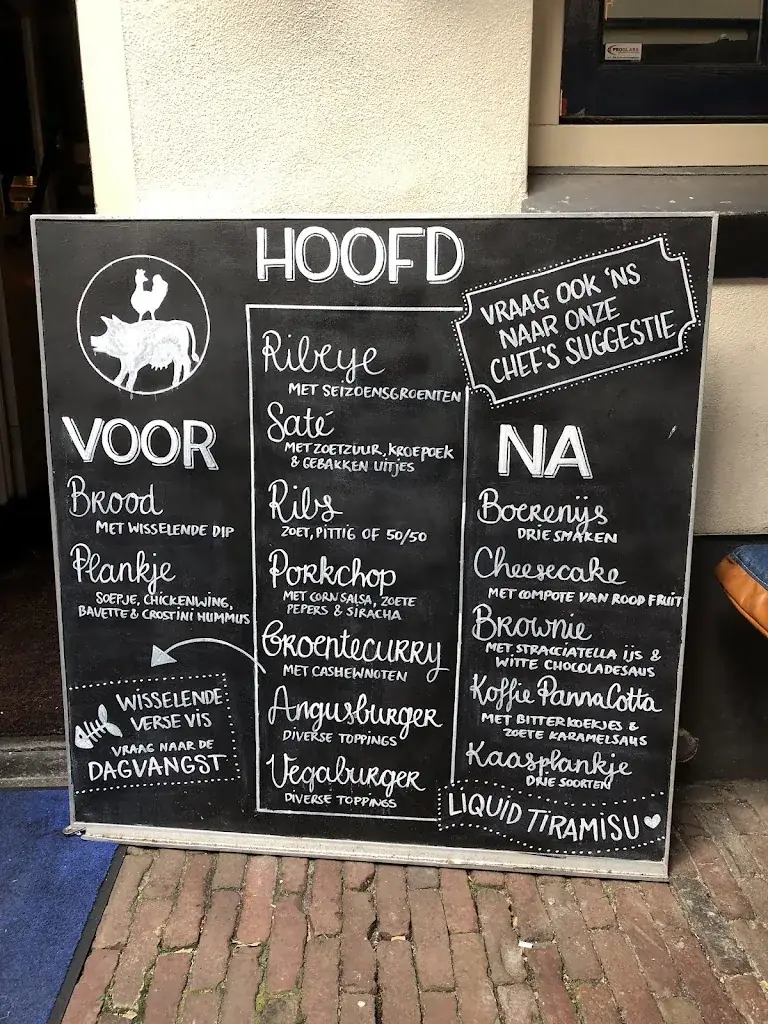 HOOFD
VRAAG OOK 'NS
NAAR ONZE
CHEF'S SUGGESTIE
VOOR
Brood
MET WISSELENDE DIP
Plankje
SOEPJE, CHICKENWING,
BAVETTE & CROSTINI HUMMUS
WISSELENDE
VERSE VIS
VRAAG NAAR DE
DAGVANGST
Ribeye
MET SEIZOENSGROENTEN
Saté
MET ZOETZUUR, KROEPOEK
& GEBAKKEN UITJES
Ribs
ZOET, PITTIG OF 50/50
Porkchop
MET CORN SALSA, ZOETE
PEPERS & SIRACHA
Groentecurry
MET CASHEWNOTEN
Angusburger
DIVERSE TOPPINGS
Vegaburger
DIVERSE TOPPINGS
NA
Boerenijs
DRIE SMAKEN
Cheesecake
MET COMPOTE VAN ROOD FRUIT
Brownie
MET STRACCIATELLA IJS &
WITTE CHOCOLADESAUS
Koffie PannaCotta
MET BITTERKOEKJES &
ZOETE KARAMELSAUS
Kaasplankje
DRIE SOORTEN
LIQUID TIRAMISU
PROGLASS